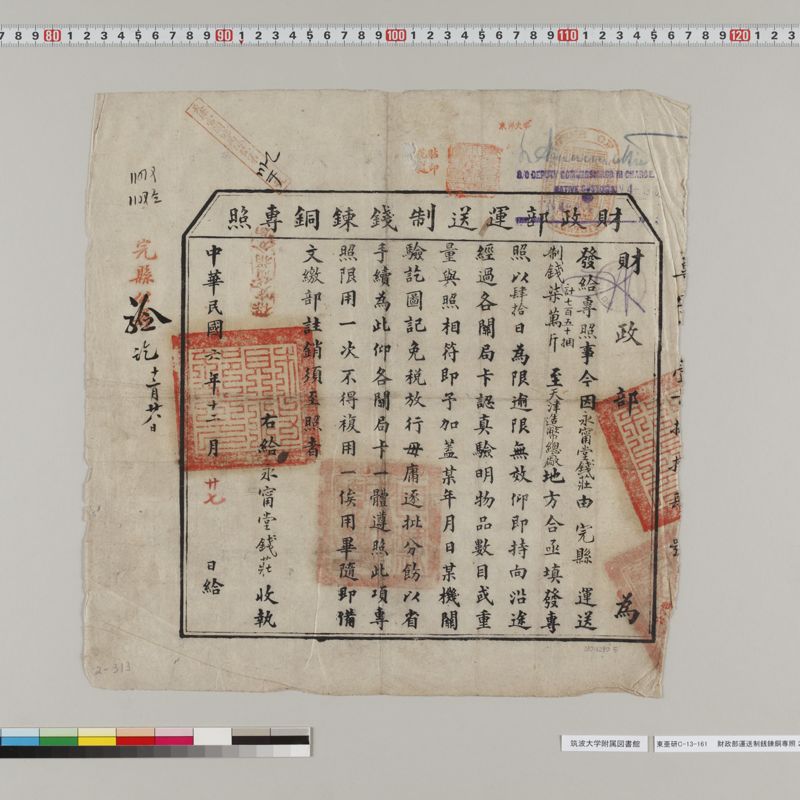 財政部運送制錢鍊銅專照
財政部 為
發給專照事今因永甯堂錢莊由 完縣 運送
制錢 計七百五十捆 柒萬斤 至天津造幣總廠地方合亟填發專
照以肆拾日為限逾限無效仰即持向沿途
經過各關局卡認真驗明物品數目或重
量與照相符即予加蓋某年月日某機關
驗訖圖記免稅放行毋庸逐批分飭以省
手續為此仰各關局卡一體遵照此項專
照限用一次不得複用一俟用畢隨即備
文繳部註銷須至照者
右給永甯堂錢莊 收執
中華民國六年十二月廿七日給
完縣
驗訖 十二月廿八日
S/O DEPUTY COMMISSIONER IN CHARGE.
2-313
筑波大学附属図書館
東亜研C-13-161 財政部運送制銭錬銅専照 2
7 8 9 80 1 2 3 4 5 6 7 8 9 90 1 2 3 4 5 6 7 8 9 100 1 2 3 4 5 6 7 8 9 110 1 2 3 4 5 6 7 8 9 120 1 2 3